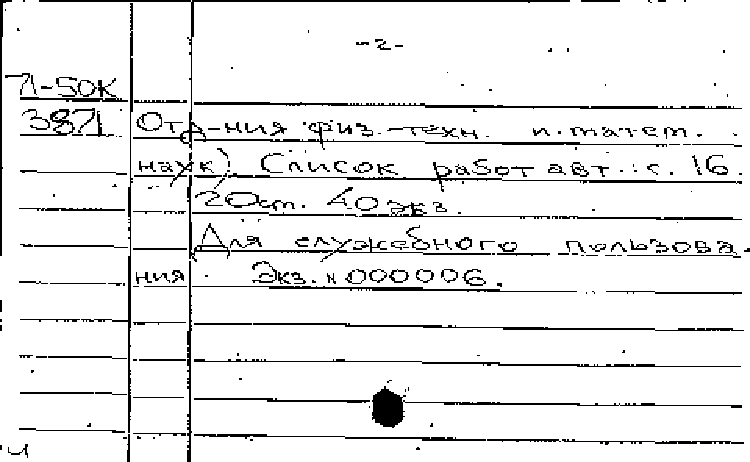 -2-
71-50К
3871 Отд-ния физ.-техн. и матем.
наук). Список работ авт.: с. 16.
20см. 40 экз.
Для служебного пользова-
ния. Экз. № 000006.